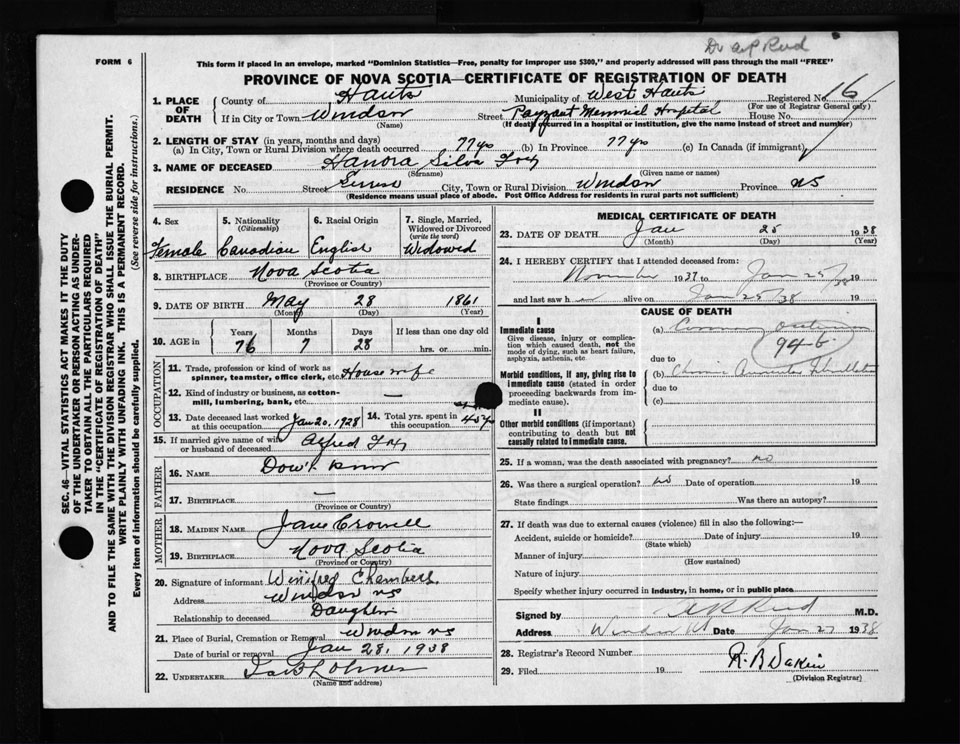 Dr A P Reid
FORM 6
This form if placed in an envelope, marked "Dominion Statistics—Free, penalty for improper use $300," and properly addressed will pass through the mail "FREE"
PROVINCE OF NOVA SCOTIA—CERTIFICATE OF REGISTRATION OF DEATH
1. PLACE OF DEATH
County of Hants Municipality of West Hants Registered No. 16
(For use of Registrar General only)
If in City or Town Windsor Street Payzant Memorial Hospital House No.
(Name) (If death occurred in a hospital or institution, give the name instead of street and number)
2. LENGTH OF STAY (in years, months and days)
(a) In City, Town or Rural Division where death occurred 77 yrs (b) In Province 77 yrs (c) In Canada (if immigrant)
3. NAME OF DECEASED Hanora Silva
(Surname) (Given name or names)
RESIDENCE No. Street City, Town or Rural Division Windsor Province NS
(Residence means usual place of abode. Post Office Address for residents in rural parts not sufficient)
4. Sex 5. Nationality 6. Racial Origin 7. Single, Married,
(Citizenship) Widowed or Divorced
(write the word)
Female Canadian English Widowed
8. BIRTHPLACE Nova Scotia
(Province or Country)
9. DATE OF BIRTH May 28 1861
(Month) (Day) (Year)
10. AGE in Years Months Days If less than one day old
76 7 28 hrs. or min.
OCCUPATION
11. Trade, profession or kind of work as
spinner, teamster, office clerk, etc. Housewife
12. Kind of industry or business, as cotton-
mill, lumbering, bank, etc. —
13. Date deceased last worked
at this occupation Jan 20, 1928
14. Total yrs. spent in
this occupation 45 y
15. If married give name of wife
or husband of deceased Alfred
FATHER
16. NAME Don't know
17. BIRTHPLACE —
(Province or Country)
MOTHER
18. MAIDEN NAME Jane Crowell
19. BIRTHPLACE Nova Scotia
(Province or Country)
20. Signature of informant Winifred Chambers
Address Windsor NS
Relationship to deceased Daughter
21. Place of Burial, Cremation or Removal Windsor NS
Date of burial or removal Jan 28, 1938
22. UNDERTAKER
(Name and address)
MEDICAL CERTIFICATE OF DEATH
23. DATE OF DEATH Jan 25 1938
(Month) (Day) (Year)
24. I HEREBY CERTIFY that I attended deceased from:
November 1937 to Jan 25/38 19
and last saw her alive on Jan 25/38 19
CAUSE OF DEATH
I
Immediate cause
Give disease, injury or complica-
tion which caused death, not the
mode of dying, such as heart failure,
asphyxia, asthenia, etc
(a) Coronary
94-b
due to
Morbid conditions, if any, giving rise to
immediate cause (stated in order
proceeding backwards from im-
mediate cause).
(b) Chronic Auricular
due to
(c)
II
Other morbid conditions (if important)
contributing to death but not
causally related to immediate cause.
25. If a woman, was the death associated with pregnancy? no
26. Was there a surgical operation? no Date of operation 19
State findings Was there an autopsy?
27. If death was due to external causes (violence) fill in also the following:—
Accident, suicide or homicide? Date of injury 19
(State which)
Manner of injury
(How sustained)
Nature of injury
Specify whether injury occurred in Industry, in home, or in public place
Signed by A P Reid M.D.
Address Windsor Date Jan 27 1938
28. Registrar's Record Number
29. Filed 19 R. B. Dakin
(Division Registrar)
SEC. 46—VITAL STATISTICS ACT MAKES IT THE DUTY
OF THE UNDERTAKER OR PERSON ACTING AS UNDER-
TAKER TO OBTAIN ALL THE PARTICULARS REQUIRED
IN THE "CERTIFICATE OF REGISTRATION OF DEATH"
AND TO FILE THE SAME WITH THE DIVISION REGISTRAR WHO SHALL ISSUE THE BURIAL PERMIT.
WRITE PLAINLY WITH UNFADING INK. THIS IS A PERMANENT RECORD.
Every item of Information should be carefully supplied. (See reverse side for instructions.)